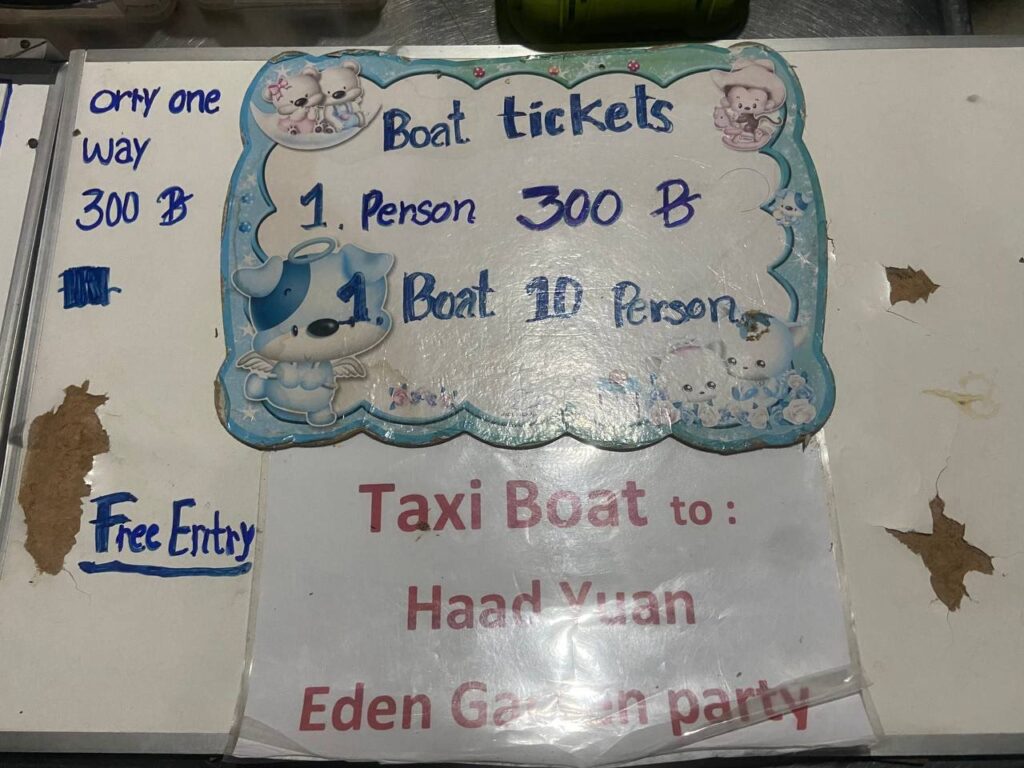 orly one
way
300 ฿
Free Entry
Boat tickets
1. Person 300 ฿
1. Boat 10 Person
Taxi Boat to :
Haad Yuan
Eden Garden party